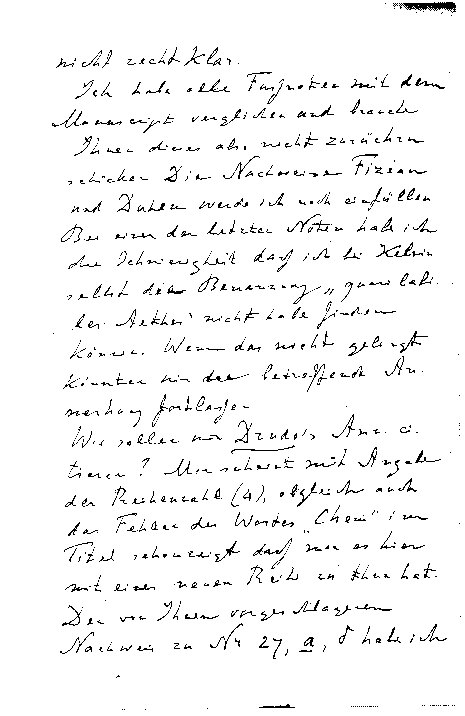 nicht recht klar.
Ich habe alle Fusznoten mit dem
Manuscript verglichen und brauche
Ihnen dieses also nicht zurückzu
schicken Die Nachweise Fizeau
und Duhem werde ich noch einfüllen
Bei einer der letzten Noten habe ich
die Schwierigkeit dasz ich bei Kelvin
selbst die Benennung „quasi labi
ler Aether" nicht habe finden
können. Wenn das nicht gelingt
könnten wir die betreffende An
merkung fortlassen
Wie sollen wir Drude's Ann. ci
tieren? Mir scheint mit Angabe
der Reihenzahl (4), obgleich auch
das Fehlen des Wortes „Chem" im
Titel schon zeigt dasz man es hier
mit einer neuen Reihe zu thun hat.
Den von Ihnen vorgeschlagenen
Nachweis zu Nr 27, a, habe ich